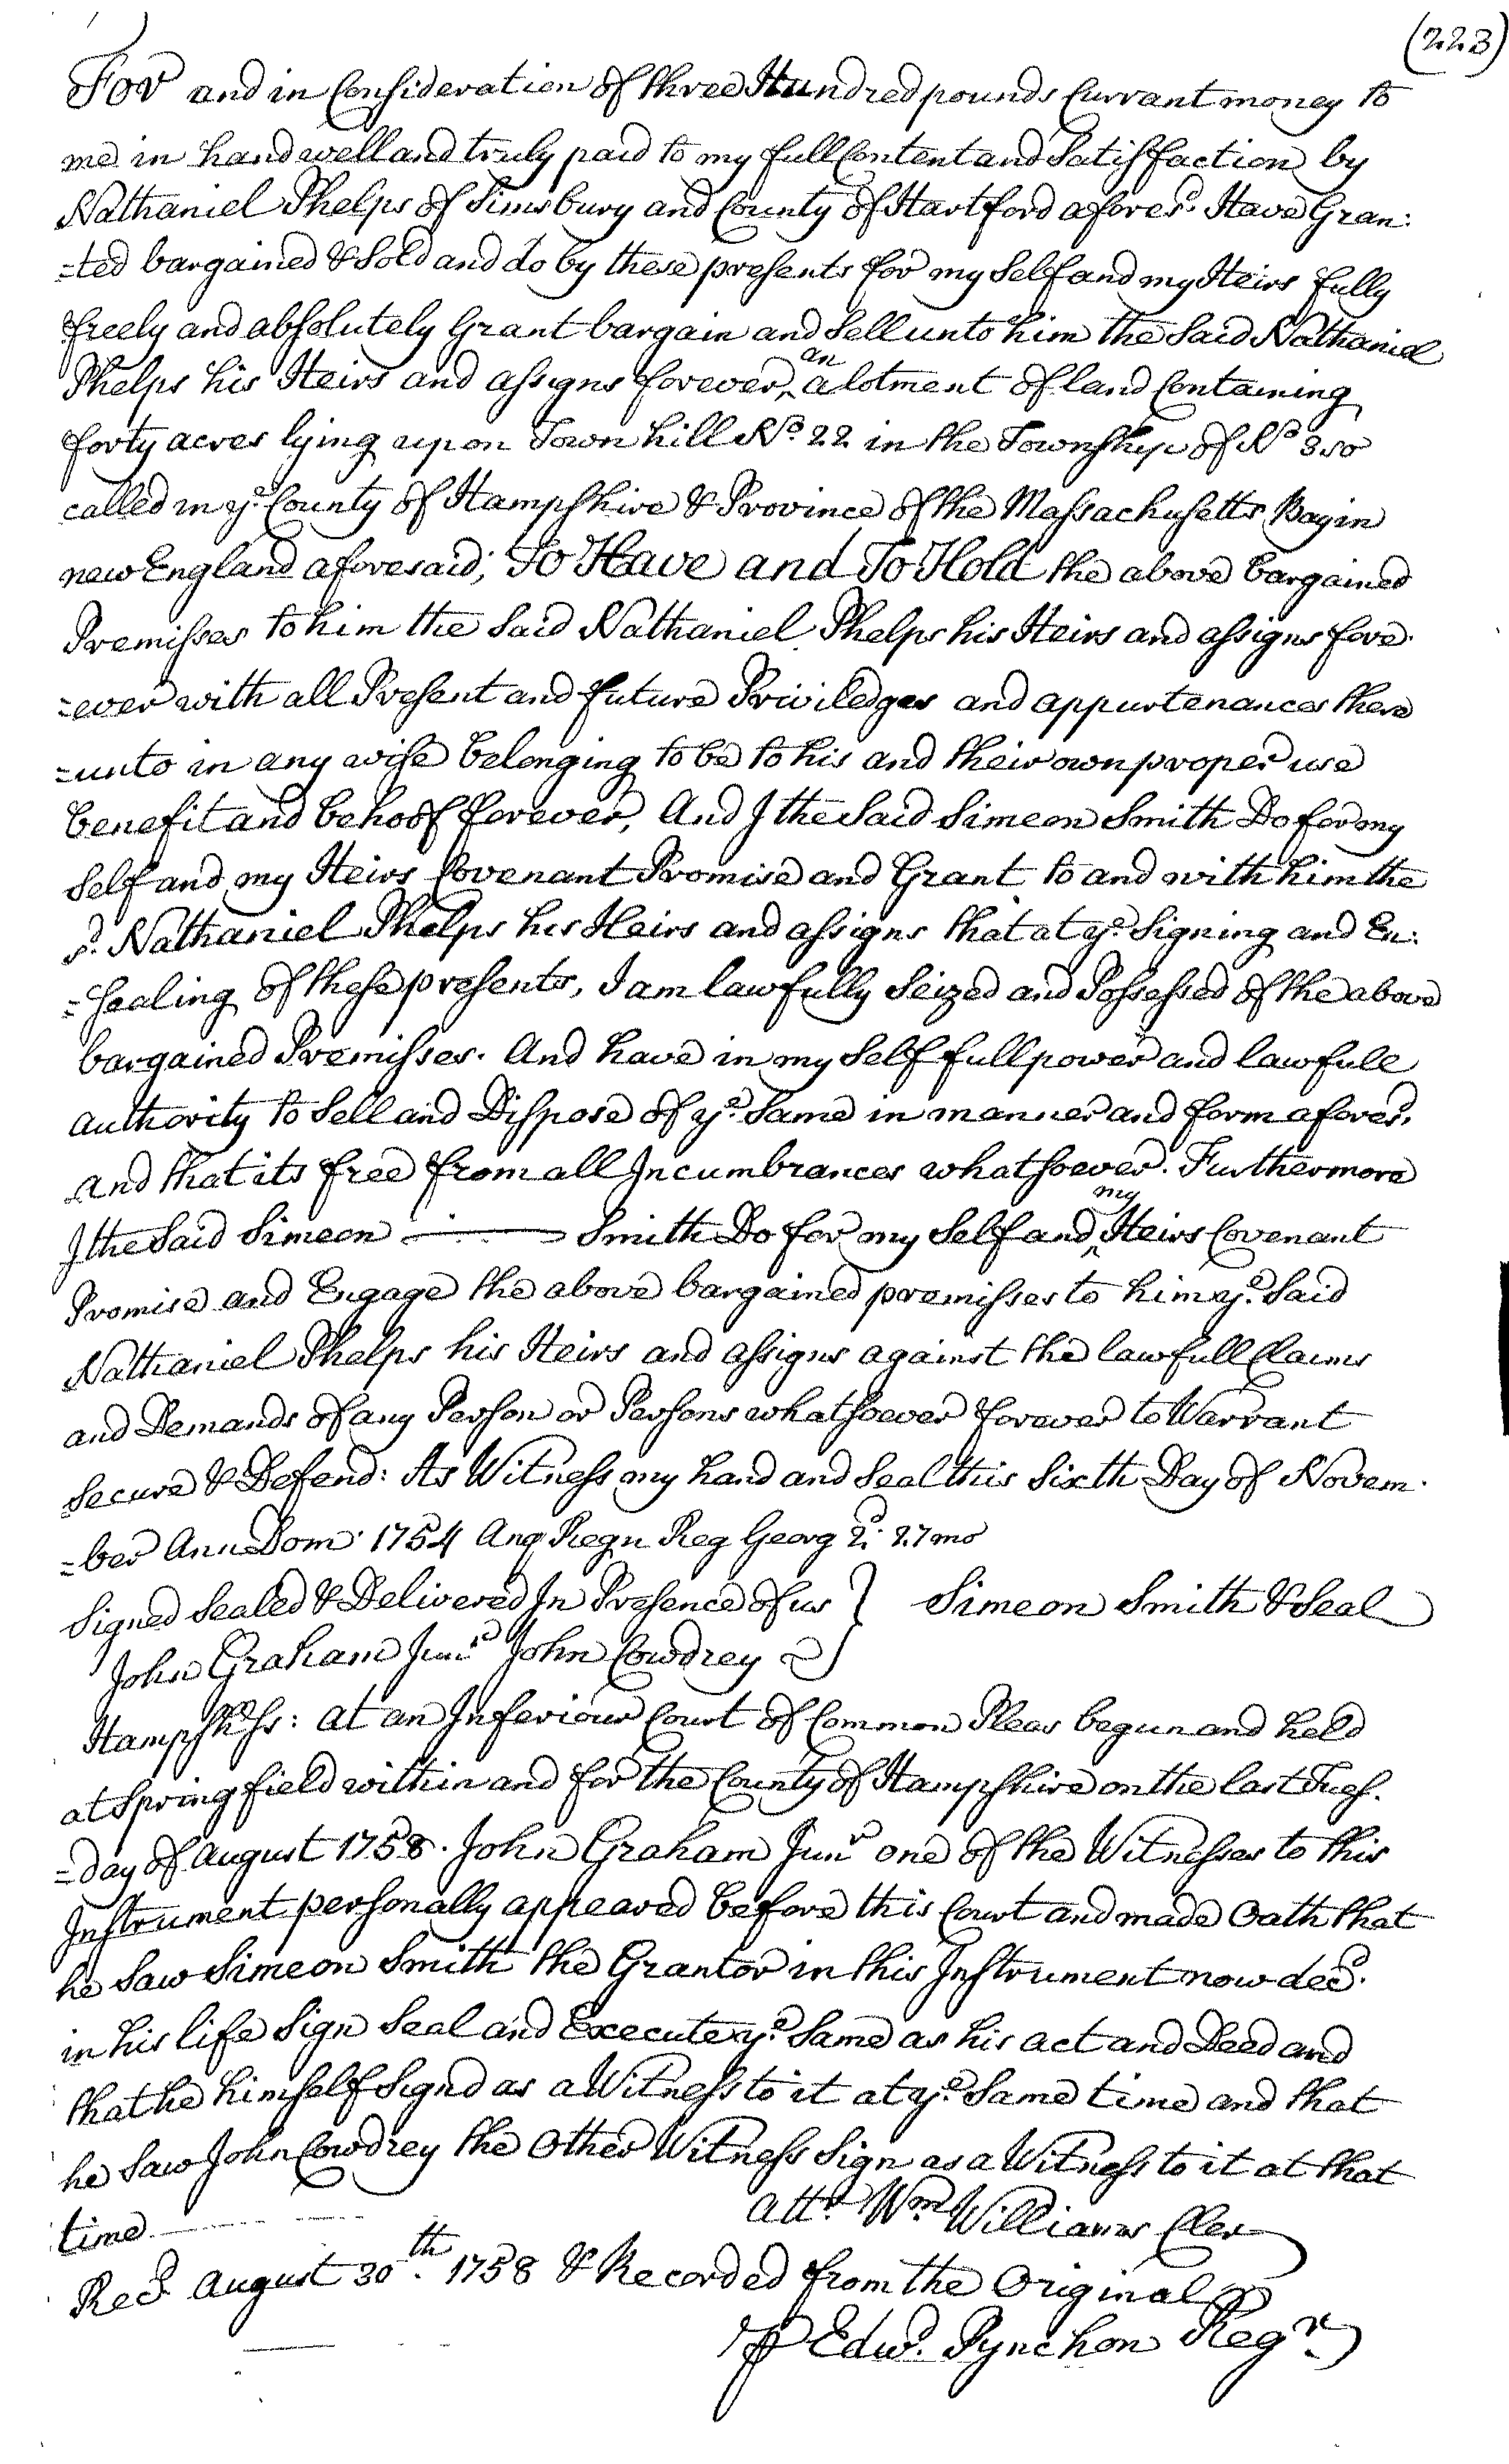 (223)
For and in Consideration of three Hundred pounds Currant money to
me in hand well and truly paid to my full Content and Satisfaction by
Nathaniel Phelps of Simsbury and County of Hartford afores.d Have Gran:
=ted bargained & Sold and do by these presents for my Self and my Heirs fully
freely and absolutely Grant bargain and Sell unto him the Said Nathaniel
Phelps his Heirs and assigns forever, an alotment of land Containing
forty acres lying upon Town hill No. 22 in the Township of No. 3 so
called in ye. County of Hampshire & Province of the Massachusetts Bay in
new England aforesaid; To Have and To Hold the above bargained
Premisses to him the Said Nathaniel Phelps his Heirs and assigns fore.
=ever with all Present and future Priviledges and appurtenances there
=unto in any wise belonging to be to his and their own proper use
benefit and behoof forever, And I the Said Simeon Smith Do for my
Self and my Heirs Covenant Promise and Grant to and with him the
sd. Nathaniel Phelps his Heirs and assigns that at ye. Signing and En:
=sealing of these presents, I am lawfully Seized and Possessed of the above
bargained Premisses. And have in my Self full power and lawfull
authority to Sell and Dispose of ye. Same in manner and form afores.d
and that its free from all Incumbrances whatsoever. Furthermore
I the Said Simeon ——— Smith Do for my Self and my Heirs Covenant
Promise and Engage the above bargained premisses to him ye. Said
Nathaniel Phelps his Heirs and assigns against the lawfull Claims
and Demands of any Person or Persons whatsoever forever to Warrant
Secure & Defend: As Witness my hand and Seal this Sixth Day of Novem.
=ber Ann Dom. 1754 Ang Regn Reg Georg 2.d 27mo
Signed Sealed & Delivered In Presence of us } Simeon Smith & Seal
John Graham Junr John Cowdrey
Hampsh Ss: at an Inferiour Court of Common Pleas begun and held
at Springfield within and for the County of Hampshire on the last Tues.
=day of August 1758. John Graham Junr one of the Witnesses to this
Instrument personally appeared before this Court and made Oath that
he Saw Simeon Smith the Grantor in this Instrument now decd.
in his life Sign Seal and Execute ye. Same as his act and Deed and
that he himself Signd as a Witness to it at ye. Same time and that
he Saw John Cowdrey the Other Witness Sign as a Witness to it at that
time ——— Attr Wm Williams Cler
Recd. August 30th. 1758 & Recorded from the Original
⅌ Edwd. Pynchon Regr.